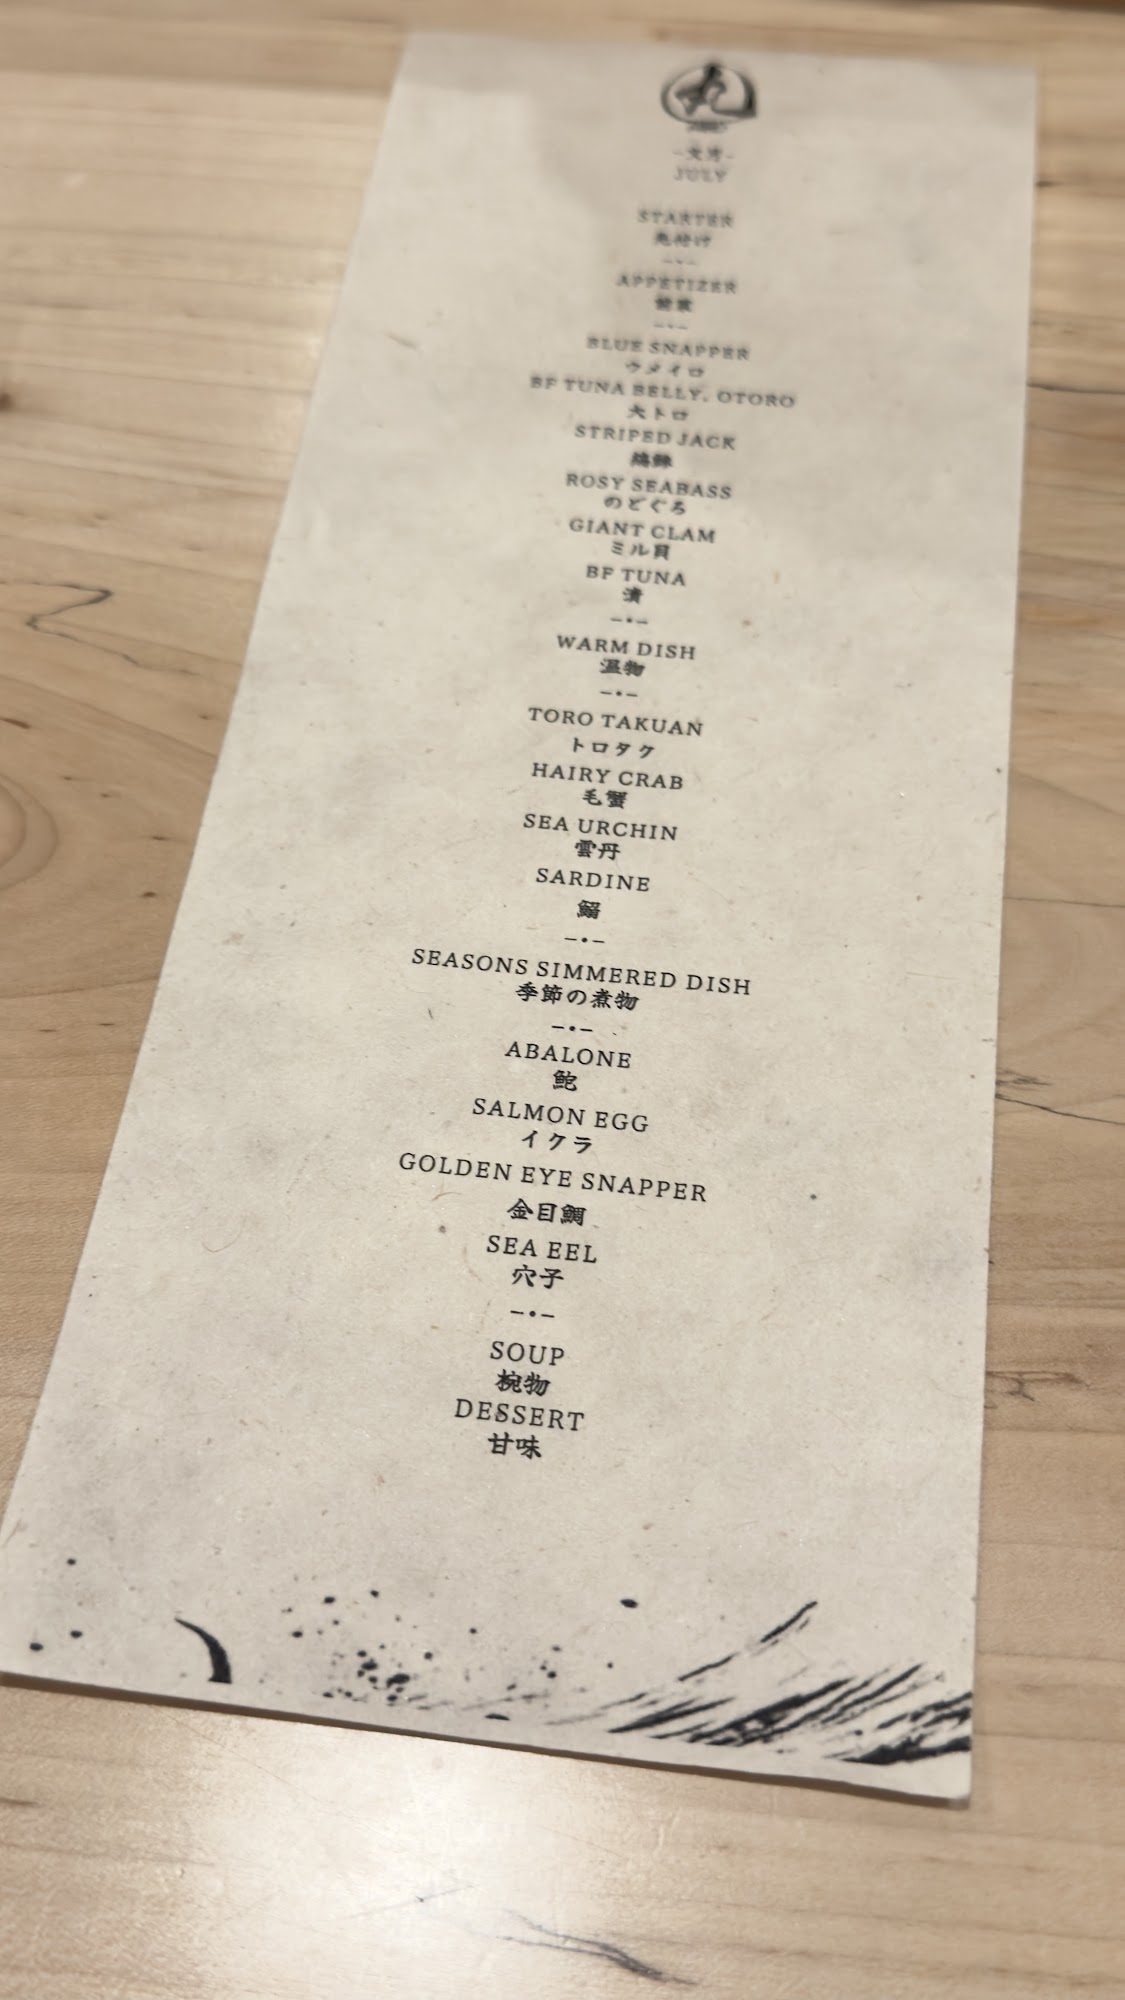 JULY
STARTER
先付け
APPETIZER
前菜
BLUE SNAPPER
ウメイロ
BF TUNA BELLY, OTORO
大トロ
STRIPED JACK
縞鯵
ROSY SEABASS
のどぐろ
GIANT CLAM
ミル貝
BF TUNA
漬
WARM DISH
温物
TORO TAKUAN
トロタク
HAIRY CRAB
毛蟹
SEA URCHIN
雲丹
SARDINE
鰯
SEASONS SIMMERED DISH
季節の煮物
ABALONE
鮑
SALMON EGG
イクラ
GOLDEN EYE SNAPPER
金目鯛
SEA EEL
穴子
SOUP
椀物
DESSERT
甘味